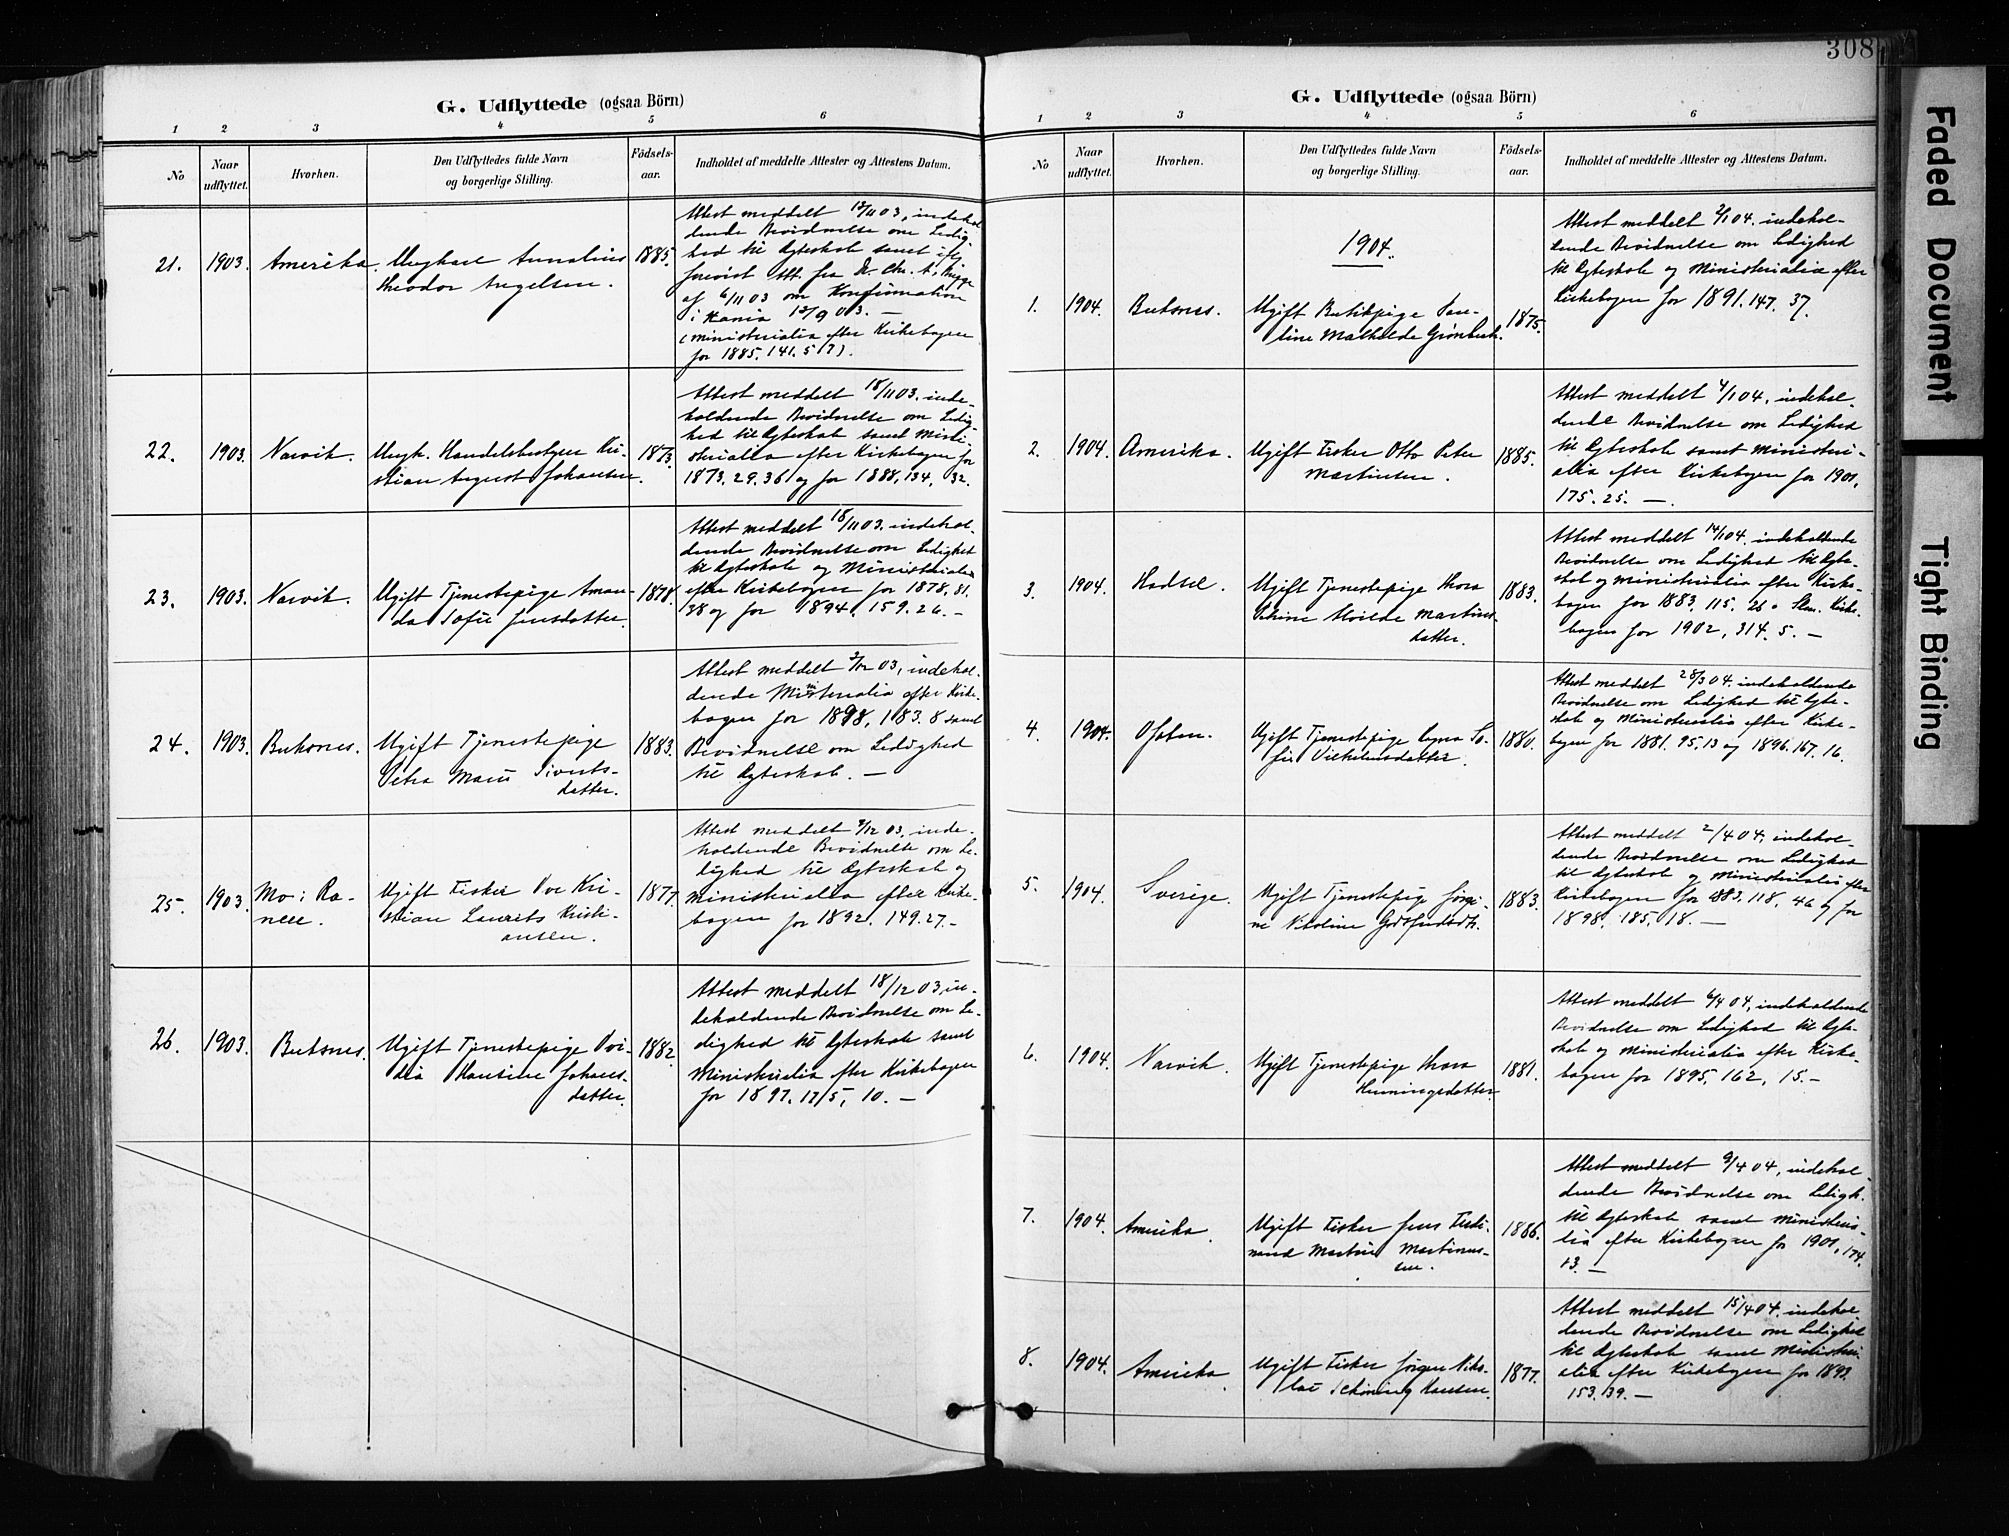 308
G. Udflyttede (ogsaa Börn)
1 2 3 4 5 6
No Naar udflyttet. Hvorhen. Den Udflyttedes fulde Navn og borgerlige Stilling. Födsels-aar. Indholdet af meddelte Attester og Attestens Datum.
21. 1903. Amerika. Ungkarl Annalius 1885.
Theodor Angelsen.
Attest meddelt 12/11 03, indehol
dende Bevidnelse om Ledig-
hed til Ægteskab samt
forevist Att. fra
af 6/11 03 om Konfirmation
i 13/9 03. —
(Ministerialia efter Kirkebogen
for 1885. 141. 57).
22. 1903. Narvik. Ungk. Handelsbestyrer Kri- 1873.
stian August Johansen.
Attest meddelt 18/11 03. inde-
holdende Bevidnelse om Ledig-
hed til Ægteskab samt Mini-
sterialia efter Kirkebogen for
1873. 29. 36 og for 1888, 134, 32.
23. 1903. Narvik. Ugift Tjenestepige Aman- 1878.
da Sofie Jensdatter.
Attest meddelt 18/11 03. indehol-
dende Bevidnelse om Ledighed
til Ægteskab og Ministerialia
efter Kirkebogen for 1878, 81.
38 og for 1894. 159. 26. —
24. 1903. Buksnes. Ugift Tjenestepige 1883.
Petra Marie Siverts-
datter.
Attest meddelt 3/12 03, indehol-
dende Ministerialia efter Kirke-
bogen for 1898, 183. 8 samt
Bevidnelse om Ledighed
til Ægteskab. —
25. 1903. Mo i Ra- Ugift Fisker Ove Kri- 1877.
nen. stian Laurits Kristi-
ansen.
Attest meddelt 9/12 03, inde-
holdende Bevidnelse om Le-
dighed til Ægteskab og
Ministerialia efter Kirke-
bogen for 1892. 149. 27. —
26. 1903. Buksnes. Ugift Tjenestepige Ovi- 1882.
dia Hansine Johans-
datter.
Attest meddelt 18/12 03, in-
deholdende Bevidnelse om Le-
dighed til Ægteskab samt
Ministerialia efter Kirkebogen
for 1897. 175, 10. —
G. Udflyttede (ogsaa Börn)
1 2 3 4 5 6
No Naar udflyttet. Hvorhen. Den Udflyttedes fulde Navn og borgerlige Stilling. Födsels-aar. Indholdet af meddelte Attester og Attestens Datum.
1904.
1. 1904. Buksnes. Ugift Butikpige Pau- 1875.
line Mathilde Grønbech.
Attest meddelt 2/1 04. indehol-
dende Bevidnelse om Ledighed
til Ægteskab og Ministerialia efter
Kirkebogen for 1891. 147. 37.
2. 1904. Amerika. Ugift Fisker Otto Peter 1885.
Martinsen.
Attest meddelt 4/1 04. indehol-
dende Bevidnelse om Ledighed
til Ægteskab samt Ministeri-
alia efter Kirkebogen for 1901,
175. 25. —
3. 1904. Hadsel. Ugift Tjenestepige Thora 1883.
Petrine Alvilde Martins-
datter.
Attest meddelt 14/1 04. indeholdende
Bevidnelse om Ledighed til Ægte-
skab og Ministerialia efter Kirke-
bogen for 1883, 115. 26 Kirke-
bogen for 1902, 314. 5. —
4. 1904. Ofoten. Ugift Tjenestepige So- 1880.
fie Vilhelmsdatter.
Attest meddelt 28/3 04. indeholdende
Bevidnelse om Ledighed til Ægte-
skab og Ministerialia efter Kirke-
bogen for 1881. 95. 13 og 1896. 167. 16.
5. 1904. Sverige. Ugift Tjenestepige Jørgi- 1883.
ne Nikoline Godtfredsdtr.
Attest meddelt 2/4 04, indehol-
dende Bevidnelse om Ledighed
til Ægteskab og Ministerialia efter
Kirkebogen for 1883, 118, 46 og for
1898. 185, 18. —
6. 1904. Narvik. Ugift Tjenestepige Thora 1881.
Henningsdatter
Attest meddelt 6/4 04, indeholdende
Bevidnelse om Ledighed til Ægte-
skab og Ministerialia efter Kirke-
bogen for 1895, 162, 15. —
7. 1904. Amerika. Ugift Fisker Jens Ferdi- 1886.
nand Martin Martinus-
sen.
Attest meddelt 9/4 04, indehol
dende Bevidnelse om Ledigh.
til Ægteskab samt Ministeria-
lia efter Kirkebogen for 1901, 174.
13. —
8. 1904. Amerika. Ugift Fisker Jørgen Niko- 1877.
lai Schøning Hansen.
Attest meddelt 15/4 04. indehol
dende Bevidnelse om Ledighed
til Ægteskab samt Ministeri-
alia efter Kirkebogen for 1893
153. 39. —
Faded Document
Tight Binding